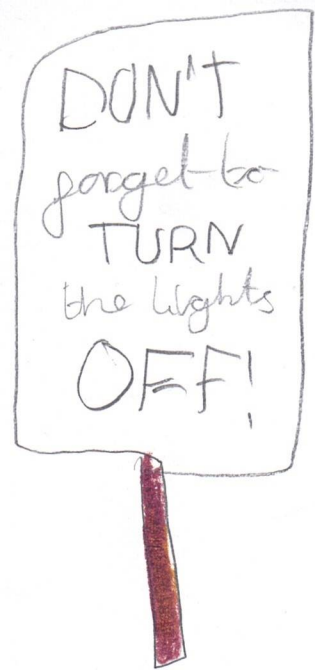 DON'T
forget to
TURN
the lights
OFF!